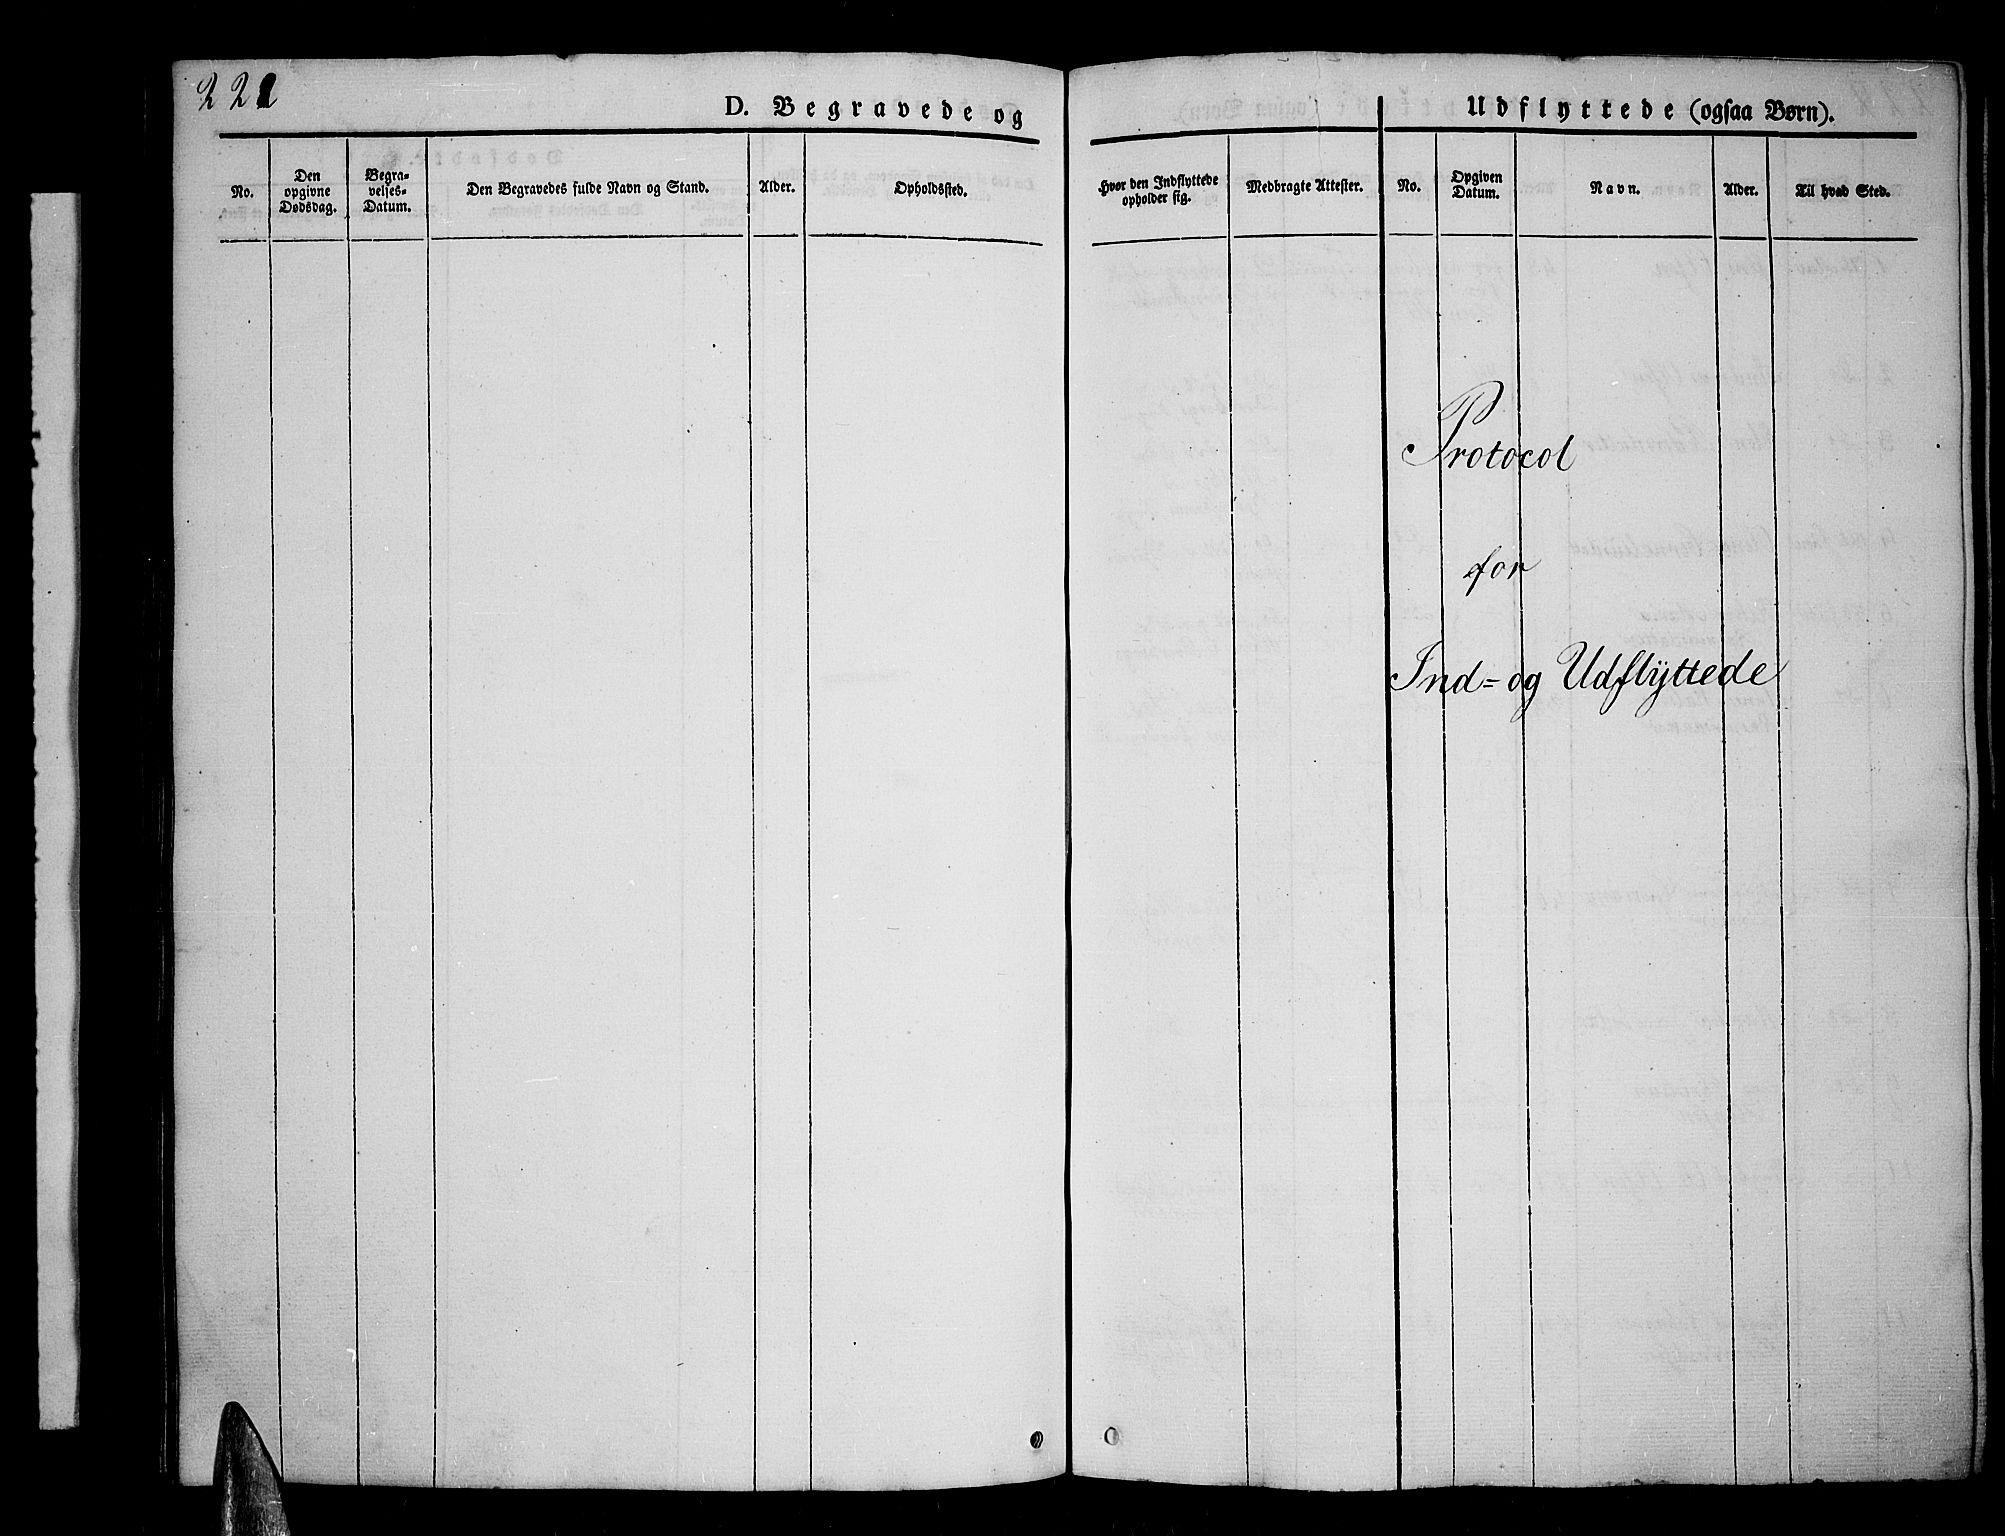 221
D. Begravede og
No.
Den
opgivne
Dødsdag.
Begra-
velses-
Datum.
Den Begravedes fulde Navn og Stand.
Alder.
Opholdssted.
Udflyttede (ogsaa Børn).
Hvor den Indflyttede
opholder sig.
Medbragte Attester.
No.
Opgiven
Datum.
Navn.
Alder.
Til hvad Sted.
Protocol
for
Ind= og Udflyttede